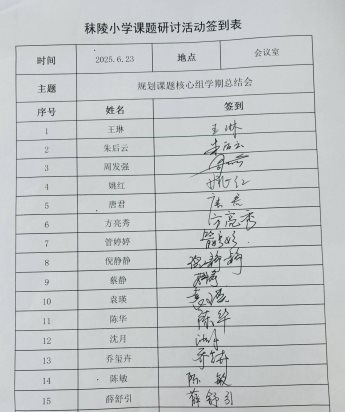 秣陵小学课题研讨活动签到表
时间 2025.6.23 地点 会议室
主题 规划课题核心组学期总结会
序号 姓名 签到
1 王琳 王琳
2 朱后云 朱后云
3 周发强
4 姚红 姚红
5 唐君 唐君
6 方亮秀 方亮秀
7 管婷婷 管婷婷
8 倪静静 倪静静
9 蔡静 蔡静
10 袁瑛 袁瑛
11 陈华 陈华
12 沈月 沈月
13 乔玺卉 乔玺卉
14 陈敏 陈敏
15 薛舒引 薛舒引